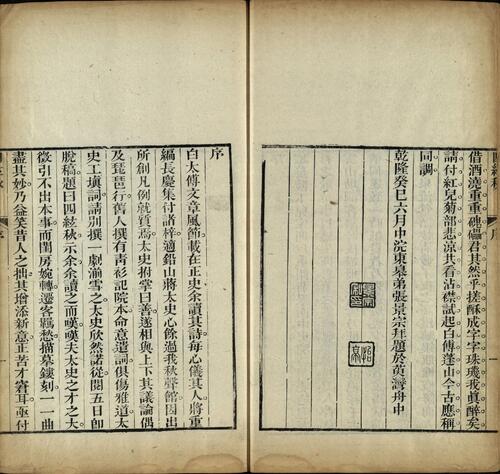 借酒澆重重磈儡君其然乎搓酥成字字珠璣哦眞醉矣
請付紅兒菊部悲涼共看沾襟試起白傅蓬山今古應稱
同調
乾隆癸巳六月中浣東皋弟張景宗拜題於萸灣舟中
序
白太傅文章風節載在正史余讀其詩每心儀其人將重
編長慶集付諸梓適鉛山蔣太史心餘過我秋聲館因出
所創凡例就質焉太史拊掌曰善遂相與上下其議論偶
及琵琶行舊人撰有靑衫記院本命意遣詞俱傷雅道太
史工塡詞請別撰一劇湔雪之太史欣然諾從閱五日卽
脫稿題曰四絃秋示余余讀之而嘆嘆夫太史之才之大
徵引不出本事而閨房婉轉遷客羈愁描摹鏤刻一一曲
盡其妙乃益笑昔人之拙其增添新意正苦才窘耳亟付